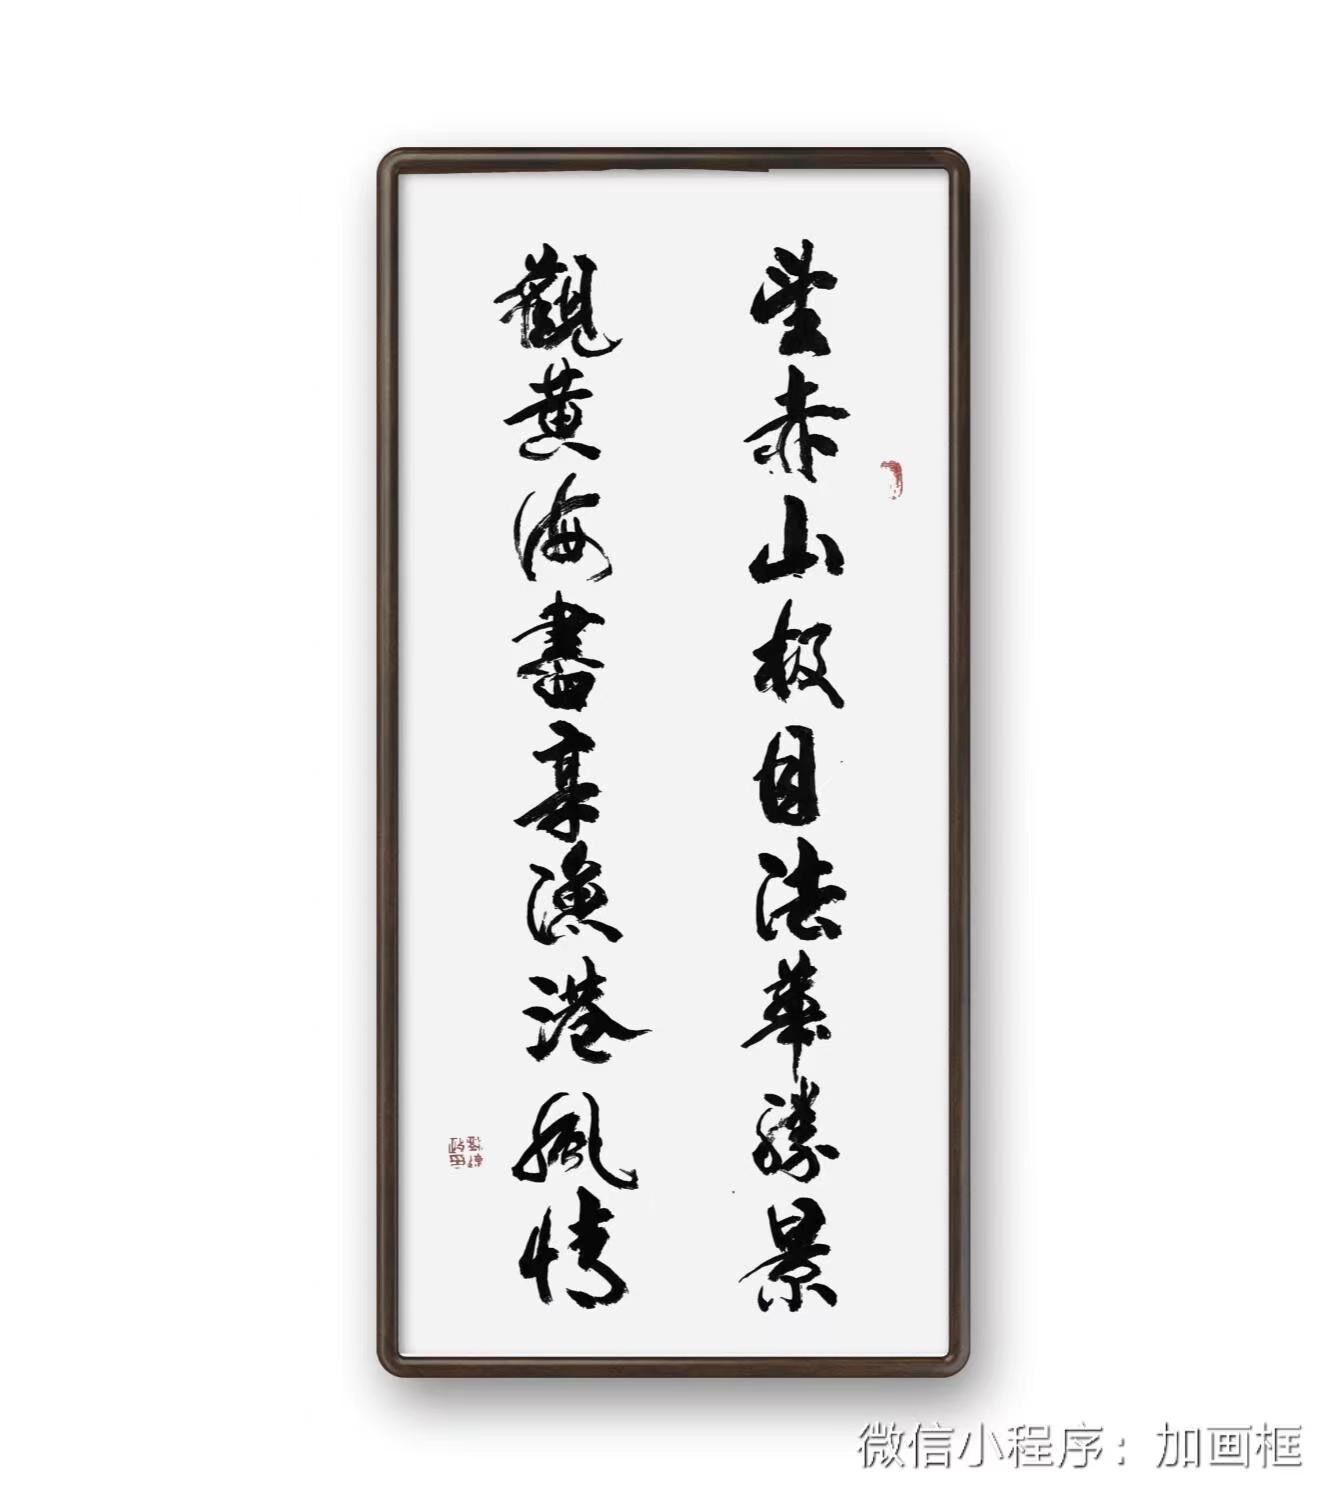 望赤山极目法華勝景
觀黄海書享漁港風情
微信小程序：加画框